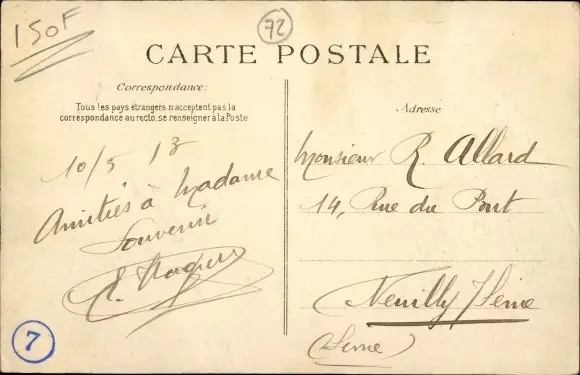 150F
72
CARTE POSTALE
Correspondance:
Tous les pays étrangers n'acceptent pas la
correspondance au recto, se renseigner à la Poste
Adresse
10/5 13
Amitiés à Madame
Souvenir
Monsieur R. Allard
14, Rue du Port
Neuilly s/Seine
(Seine)
7